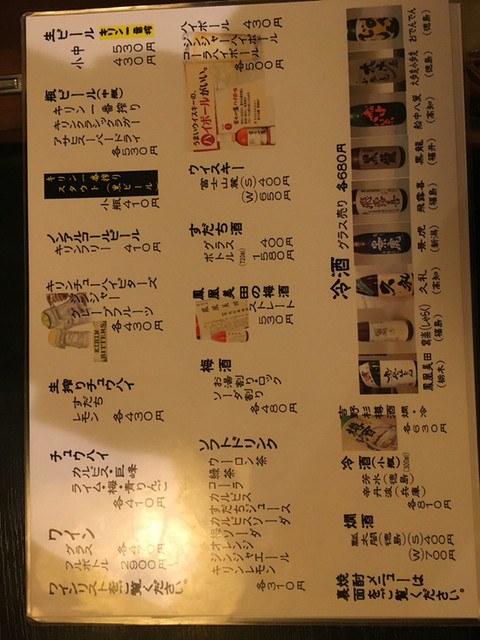 生ビール キリン一番搾り
小 530円
中 430円
瓶ビール(中瓶)
キリン一番搾り
キリンクラシックラガー
アサヒスーパードライ
各530円
キリン一番搾り
スタウト(黒ビール)
小瓶 410円
ノンアルコールビール
キリンフリー 410円
キリンチューハイビターズ
ジンジャー
グレープフルーツ
各430円
生搾りチュウハイ
すだち
レモン 各430円
チュウハイ
カルピス・巨峰
ライム・梅・青りんご
各410円
ワイン
グラス
フルボトル 2900円
ワインリストをご覧ください。
ハイボール 430円
ジンジャーハイボール
コーラハイボール
各500円
うまいウイスキーの、
ハイボールがいい。
ウィスキー
富士山麓 (S)400円
(W)650円
すだち酒
グラス 400円
ボトル(720ml) 1580円
鳳凰美田の梅酒
ストレート
530円
梅酒
お湯割り・ロック
ソーダ割り
各480円
ソフトドリンク
ウーロン茶
緑茶
コーラ
カルピス
すだちジュース
梅カルピスソーダ
オレンジジュース
ジンジャエール
キリンレモン
各310円
冷酒 グラス売り 各680円
おでんでん(徳島)
大歩危小歩危(徳島)
船中八策(高知)
黒龍(福井)
飛露喜(福島)
景虎(新潟)
久礼(高知)
寫楽(しゃらく)(福島)
鳳凰美田(栃木)
吉野杉樽酒 燗・冷
各630円
冷酒(小瓶)(300ml)
芳水(徳島)
辛丹波(兵庫)
各810円
燗酒
瓢太閤(徳島) (S)400円
(W)700円
焼酎メニューは
裏面をご覧ください。